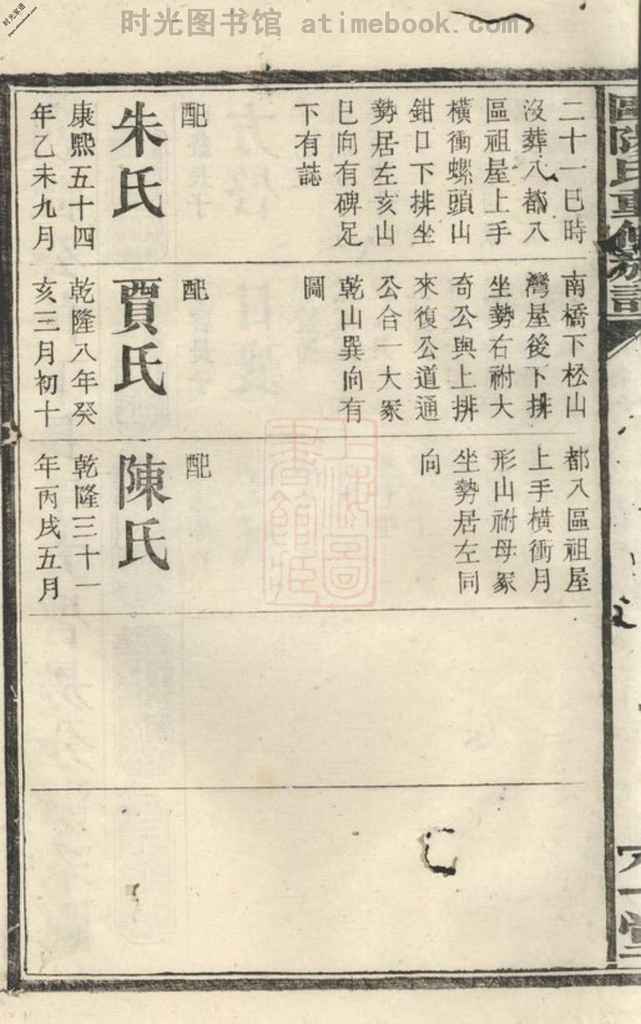 时光图书馆 atimebook.com
二十一巳時
沒葬八都八
區祖屋上手
橫衝螺頭山
鉗口下排坐
勢居左亥山
巳向有碑足
下有誌
配
朱氏
康熙五十四
年乙未九月
南橋下松山
灣屋後下排
坐勢右祔大
奇公與上排
來復公道通
公合一大冢
乾山巽向有
圖
配
賈氏
乾隆八年癸
亥三月初十
都八區祖屋
上手橫衝月
形山祔母冢
坐勢居左同
向
配
陳氏
乾隆三十一
年丙戌五月
陳氏重修族譜